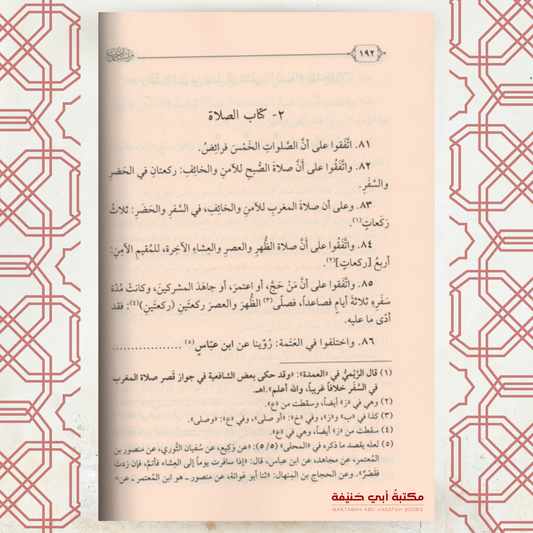 ١٩٢
٢- كتاب الصلاة
٨١. اتَّفَقوا على أنَّ الصَّلواتِ الخَمْسَ فرائِضُ.
٨٢. واتَّفَقُوا على أَنَّ صلاةَ الصُّبحِ للآمنِ والخائِفِ: ركعتانِ في الحَضرِ
والسَّفَرِ.
٨٣. وعلى أن صلاةَ المغربِ للآمنِ والخائفِ، في السَّفَرِ والحَضَرِ: ثلاثُ
رَكَعاتٍ(١).
٨٤. واتَّفَقُوا على أنَّ صلاةَ الظُّهرِ والعصرِ والعِشاءِ الآخِرةِ، للمُقيمِ الآمنِ:
أربعُ [ركعاتٍ](٢).
٨٥. واتَّفَقُوا على أنَّ مَنْ حَجَّ، أو اعتمَرَ، أو جاهَدَ المشركينَ، وكانتْ مُدَّة
سَفَرِهِ ثلاثةَ أيامٍ فصاعداً، فصلَّى(٣) الظُّهرَ والعصرَ ركعتَينِ (ركعتَينِ)(٤): فقد
أدَّى ما عليه.
٨٦. واختلَفوا في العَتَمة: رُوِّينا عن ابن عبّاسٍ (٥) .................
(١) قال الرَّيْمِيُّ في «العمدة»: «وقد حكى بعض الشافعية في جواز قَصر صلاة المغرب
في السَّفَر خلافاً غريباً، والله أعلم».اهـ
(٢) وهي في «ز» أيضاً، وسقطت من «ع».
(٣) كذا في «ب» و«ز»، وفي «خ»: «أو صلى»، وفي «ع»: «وصلى».
(٤) سقطت من «ز» أيضاً، وهي في «ع».
(٥) لعله يقصد ما ذكره في «المحلى» (٥/ ٥): «عن وَكيع، عن سُفيان الثَّوري، عن منصور بن
المُعتمر، عن مجاهد، عن ابن عباس، قال: «إذا سافرت يوماً إلى العِشاء فأتمَّ، فإن زدتَ
فقَصِّرْ». وعن الحجاج بن المِنهال: «ثنا أبو عَوانة، عن منصور ـ هو ابن المُعتمر ـ عن»
مكتبة أبي حنيفة
MAKTABAH ABU HANIFAH BOOKS